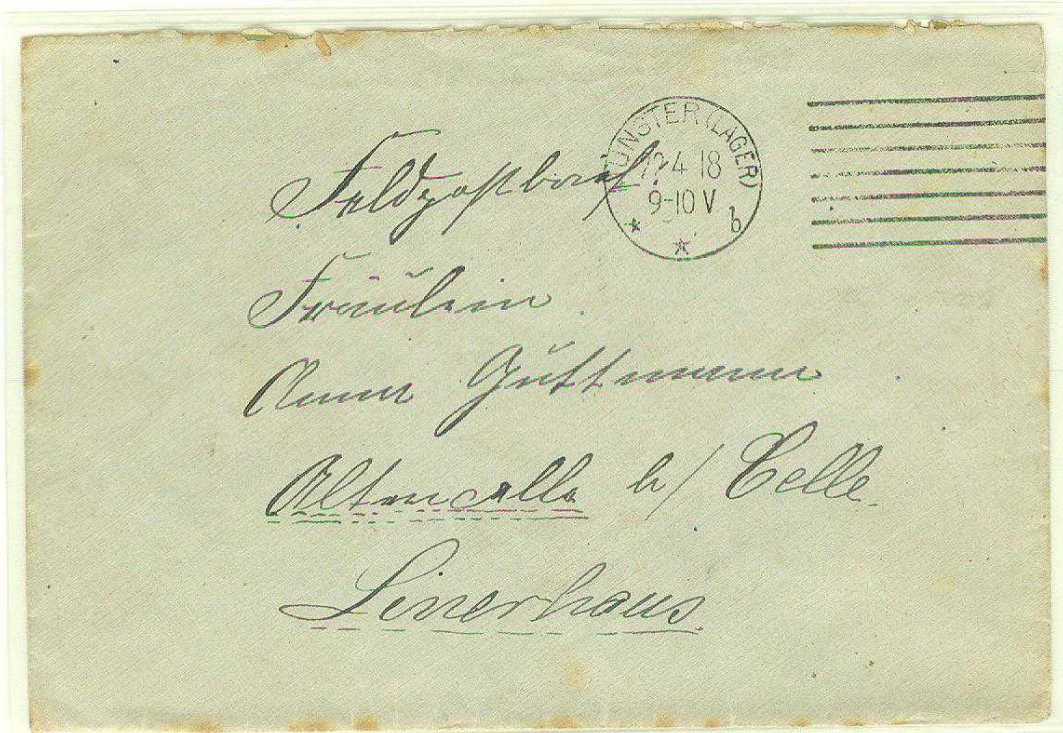 MÜNSTER (LAGER)
12.4.18
9-10 V
* * b
Feldpostbrief.
Fräulein
Anna Guttmann
Altencelle b/ Celle.
Linerhaus